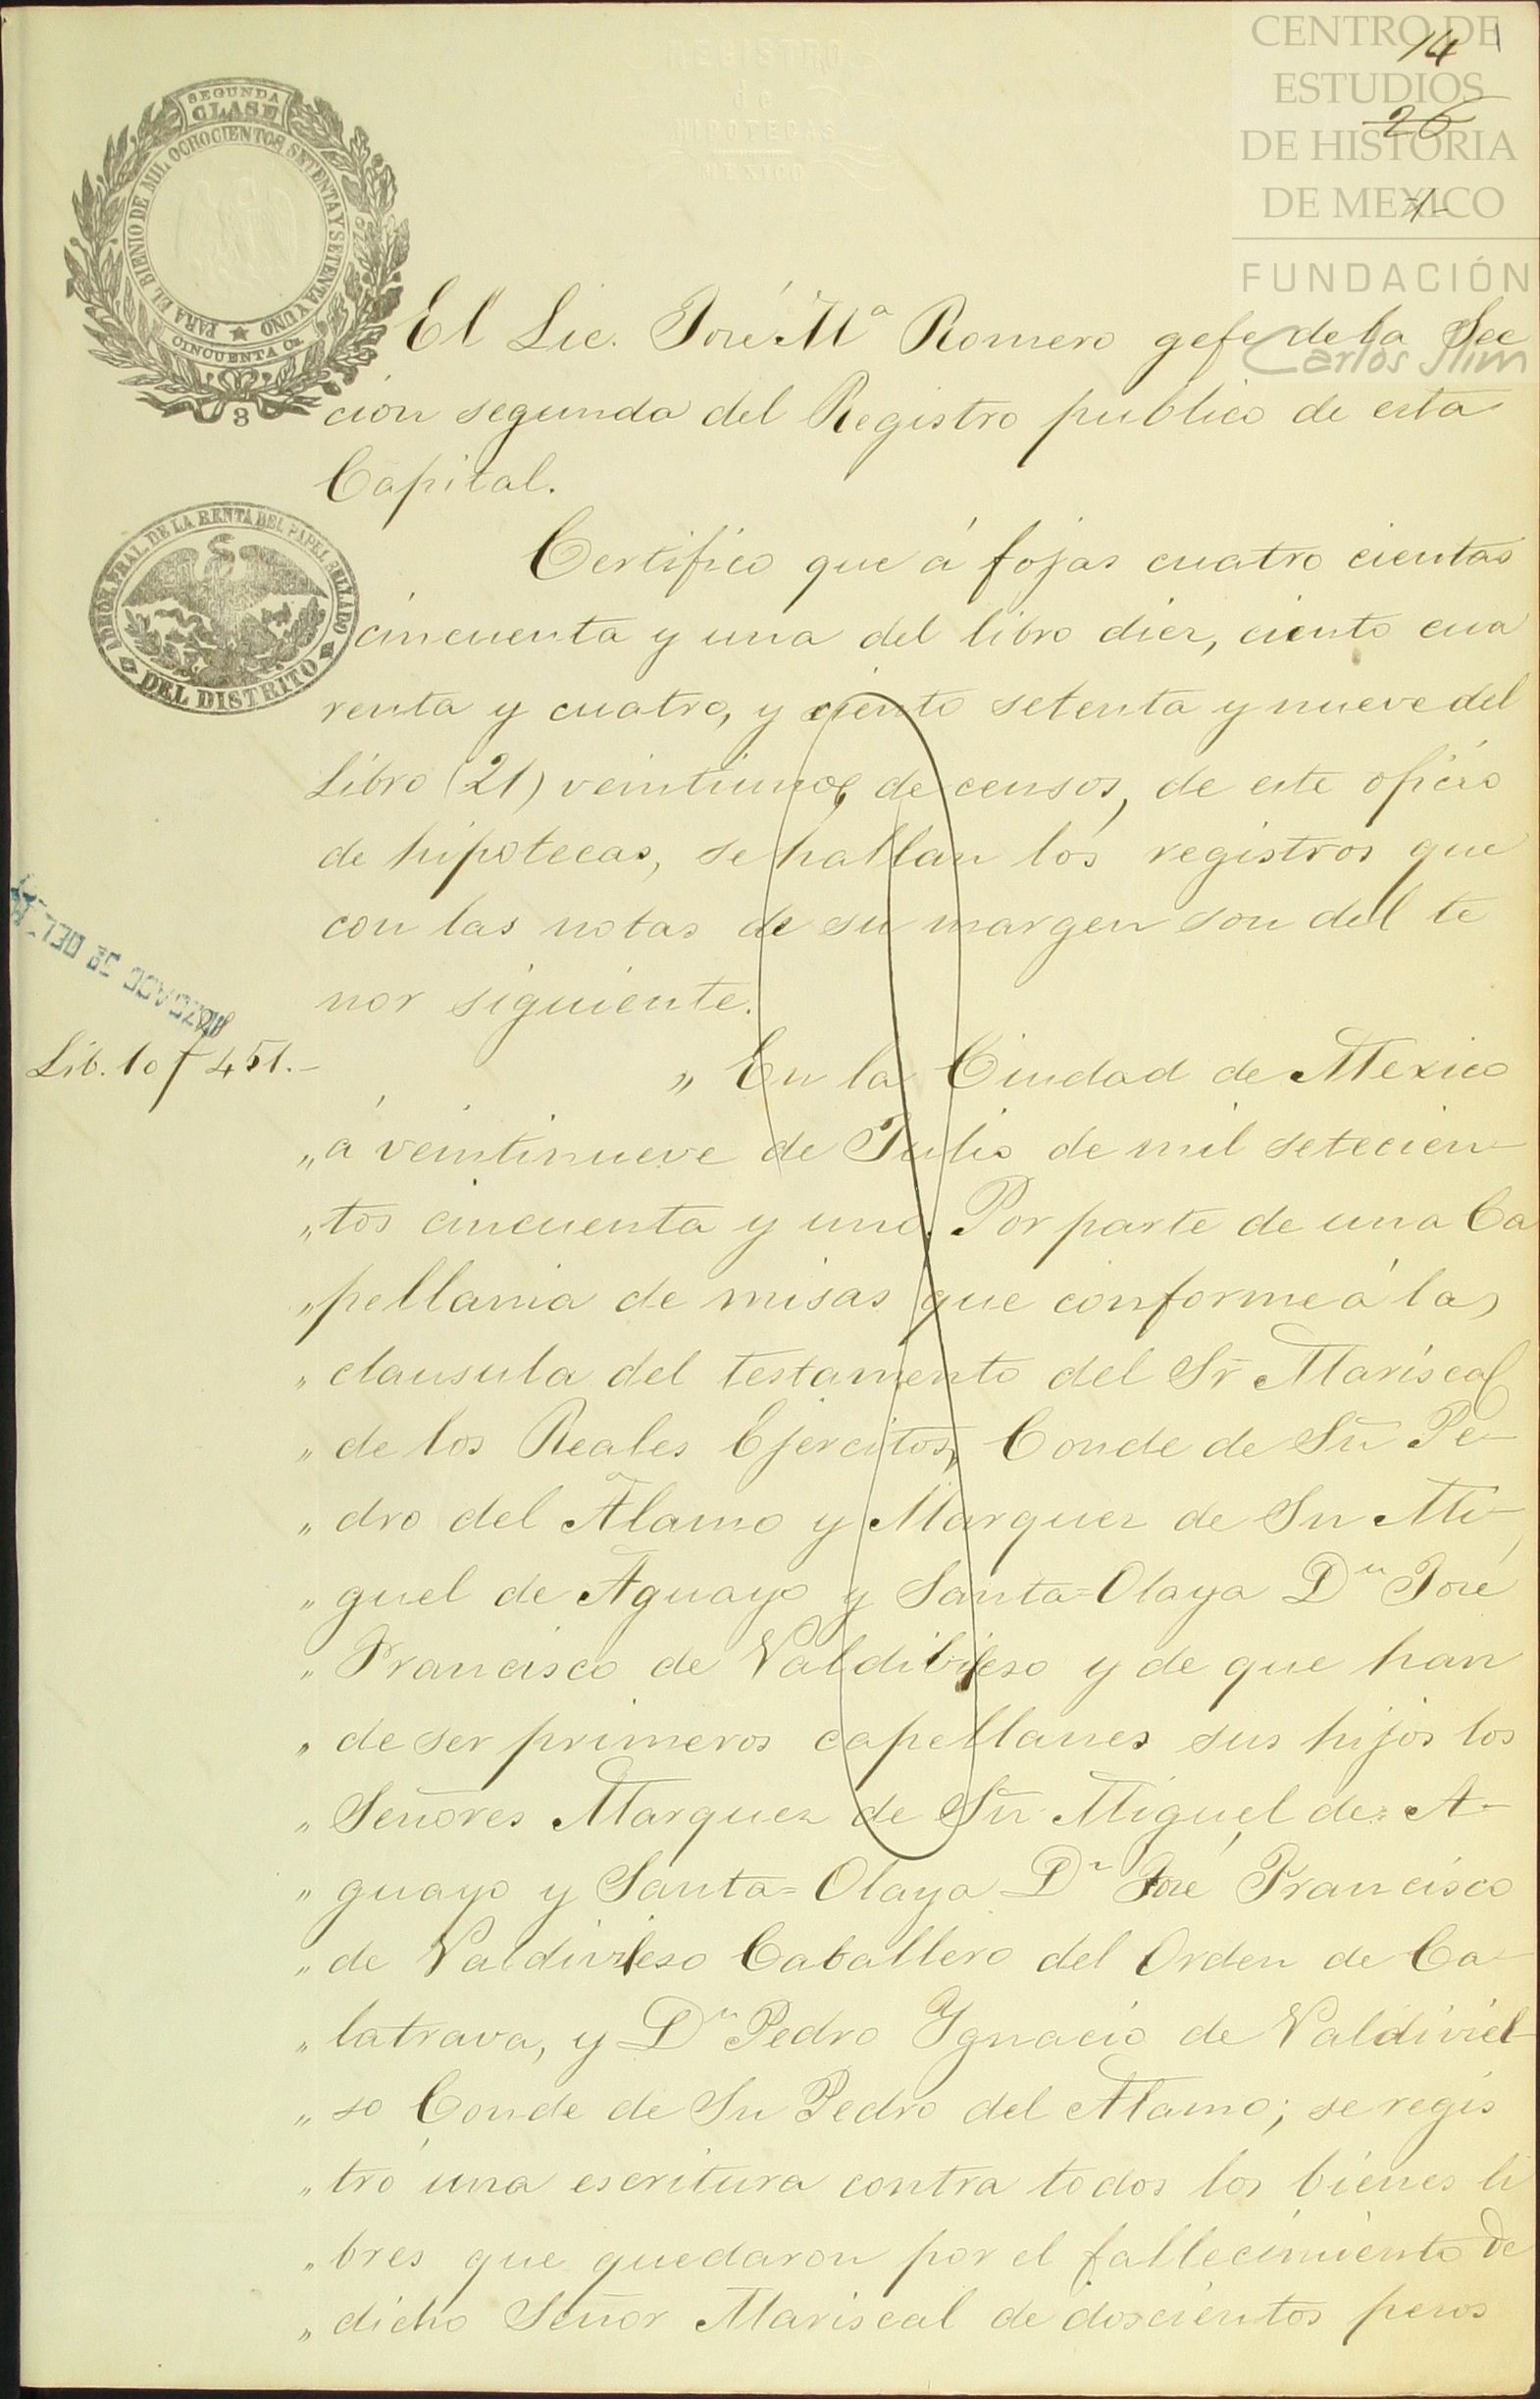 CENTRO DE
ESTUDIOS
DE HISTORIA
DE MEXICO
FUNDACIÓN
Carlos Slim
14
26
REGISTRO
de
HIPOTECAS
MEXICO
SEGUNDA
CLASE
PARA EL BIENIO DE MIL OCHOCIENTOS SETENTA Y SETENTA Y UNO
CINCUENTA Cs
8
El Lic. José Mª Romero gefe de la Sec
cion segunda del Registro publico de esta
Capital.
DEL DISTRITO
Certifico que á fojas cuatro cientas
cincuenta y una del libro diez, ciento cua
renta y cuatro, y ciento setenta y nueve del
Libro (21) veintiuno, de censos, de este oficio
de hipotecas, se hallan los registros que
con las notas de su margen son del te
nor siguiente.
JUZGADO 5º DEL
Lib. 10 f 451.-
„ En la Ciudad de Mexico
„á veintinueve de Julio de mil setecien-
„tos cincuenta y uno. Por parte de una Ca
„pellania de misas que conforme á la
„clausula del testamento del Sr Mariscal
„de los Reales Ejercitos, Conde de Sn Pe-
„dro del Alamo y Marquez de Sn Mi-
„guel de Aguayo y Santa=Olaya Dn José
„Francisco de Valdibieso y de que han
„de ser primeros capellanes sus hijos los
„Señores Marquez de Sn Miguel de A-
„guayo y Santa=Olaya Dn José Francisco
„de Valdivieso Caballero del Orden de Ca-
„latrava, y Dn Pedro Ygnacio de Valdiviel-
„so Conde de Sn Pedro del Alamo; se regis
„tró una escritura contra todos los bienes li
„bres que quedaron por el fallecimiento de
„dicho Señor Mariscal de doscientos pesos